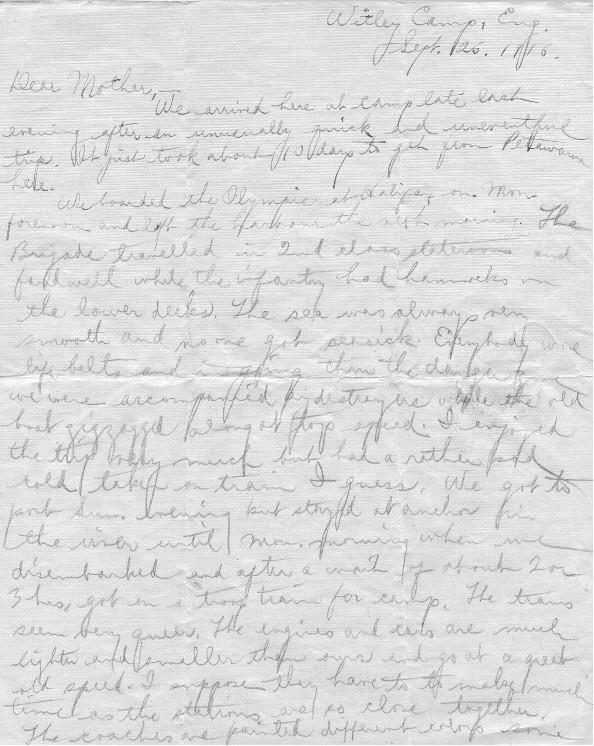 Witley Camp, Eng.
Sept. 26. 1916.
Dear Mother,—
We arrived here at camp late last
evening after an unusually quick and uneventful
trip. It just took about 10 days to get from Petawawa
here.
We boarded the Olympic at Halifax on Mon.
forenoon and left the harbour the next morning. The
Brigade travelled in 2nd class staterooms and
fared well while the infantry had hammocks on
the lower decks. The sea was always very
smooth and no one got seasick. Everybody wore
life belts and in going thru the danger
we were accompanied by destroyers while the old
boat zigzagged along at top speed. I enjoyed
the trip very much but had a rather bad
cold taken on train I guess. We got to
port Sun. evening but stayed at anchor in
the river until Mon. morning when we
disembarked and after a wait of about 2 or
3 hrs, got on a troop train for camp. The trains
seem very queer. The engines and cars are much
lighter and smaller than ours and go at a great
old speed. I suppose they have to to make much
time as the stations are so close together.
The coaches are painted different colors some